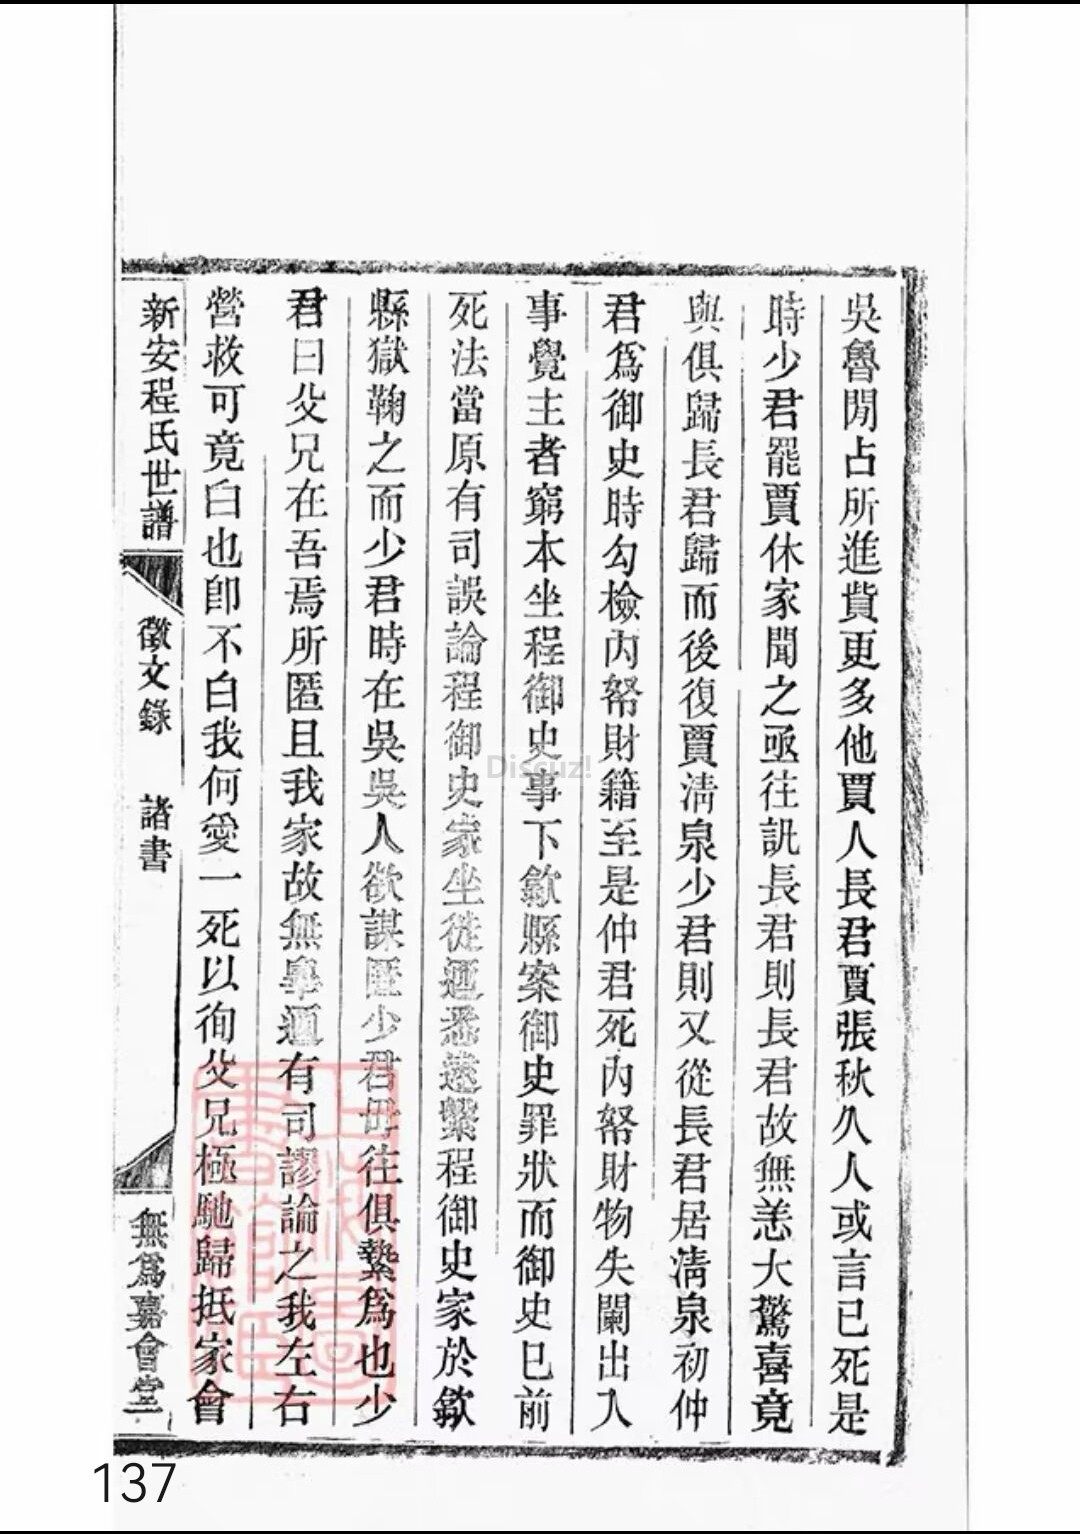 吳魯閒占所進貲更多他賈人長君賈張秋久人或言已死是
時少君罷賈休家聞之亟往訊長君則長君故無恙大驚喜竟
與俱歸長君歸而後復賈清泉少君則又從長君居清泉初仲
君爲御史時勾檢內帑財籍至是仲君死內帑財物失闌出入
事覺主者窮本坐程御史事下歙縣案御史罪狀而御史已前
死法當原有司誤論程御史家坐徙逥悉遂繫程御史家於歙
縣獄鞠之而少君時在吳吳人欲謀匿少君毋往俱縶爲也少
君曰父兄在吾焉所匿且我家故無辜逥有司謬論之我左右
營救可竟白也卽不白我何愛一死以徇父兄極馳歸抵家會
新安程氏世譜 徵文錄 諸書 無爲嘉會堂
上海圖書館藏
Discuz!
137